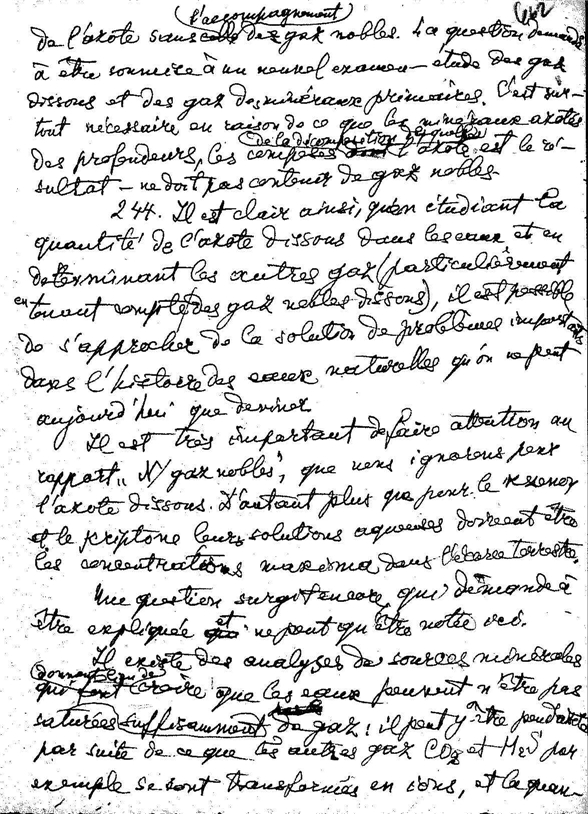 642
(l'accompagnement)
de l'azote sans des gaz nobles. La question demande
à être soumise à un nouvel examen — étude des gaz
dissous et des gaz des minéraux primaires. C'est sur-
tout nécessaire en raison de ce que les minéraux azotés
de la décomposition desquels
des profondeurs, les composés l'azote est le ré-
sultat — ne doit pas contenir de gaz nobles.
244. Il est clair ainsi, qu'en étudiant la
quantité de l'azote dissous dans les eaux et en
determinant les autres gaz (particulièrement
en tenant compte des gaz nobles dissous), il est possible
de s'approcher de la solution de problèmes importants
dans l'histoire des eaux naturelles qu'on ne peut
aujourd'hui que deviner.
Il est très important de faire attention au
rapport „N/gaz nobles", que nous ignorons pour
l'azote dissous. D'autant plus que pour le xenon
et le kriptone leurs solutions aqueuses doivent être
les concentrations maxima dans l'écorce terrestre.
Une question surgit encore, qui demande à
être expliquée et ne peut qu'être notée ici.
Il existe des analyses de sources minérales
donnent lieu de
qui font croire que les eaux peuvent n'être pas
saturées suffisamment de gaz; il peut y être
par suite de ce que les autres gaz CO₂ et H₂S par
exemple se sont transformés en ions, et la quan-